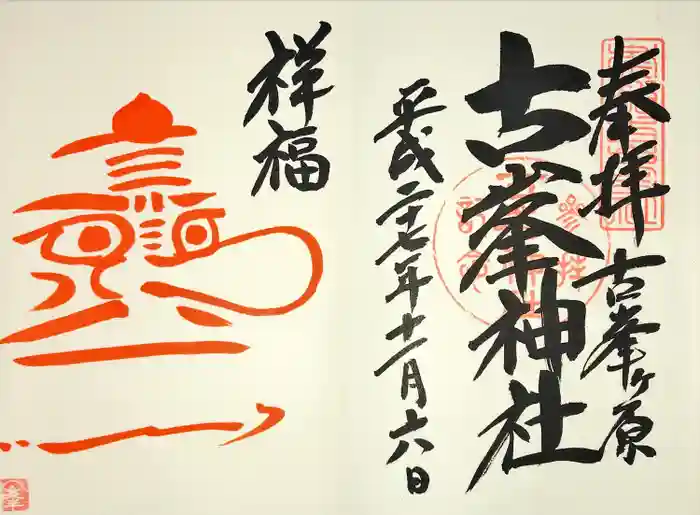 奉拝
古峯ヶ原
古峯神社
平成二十七年十一月六日
祥福